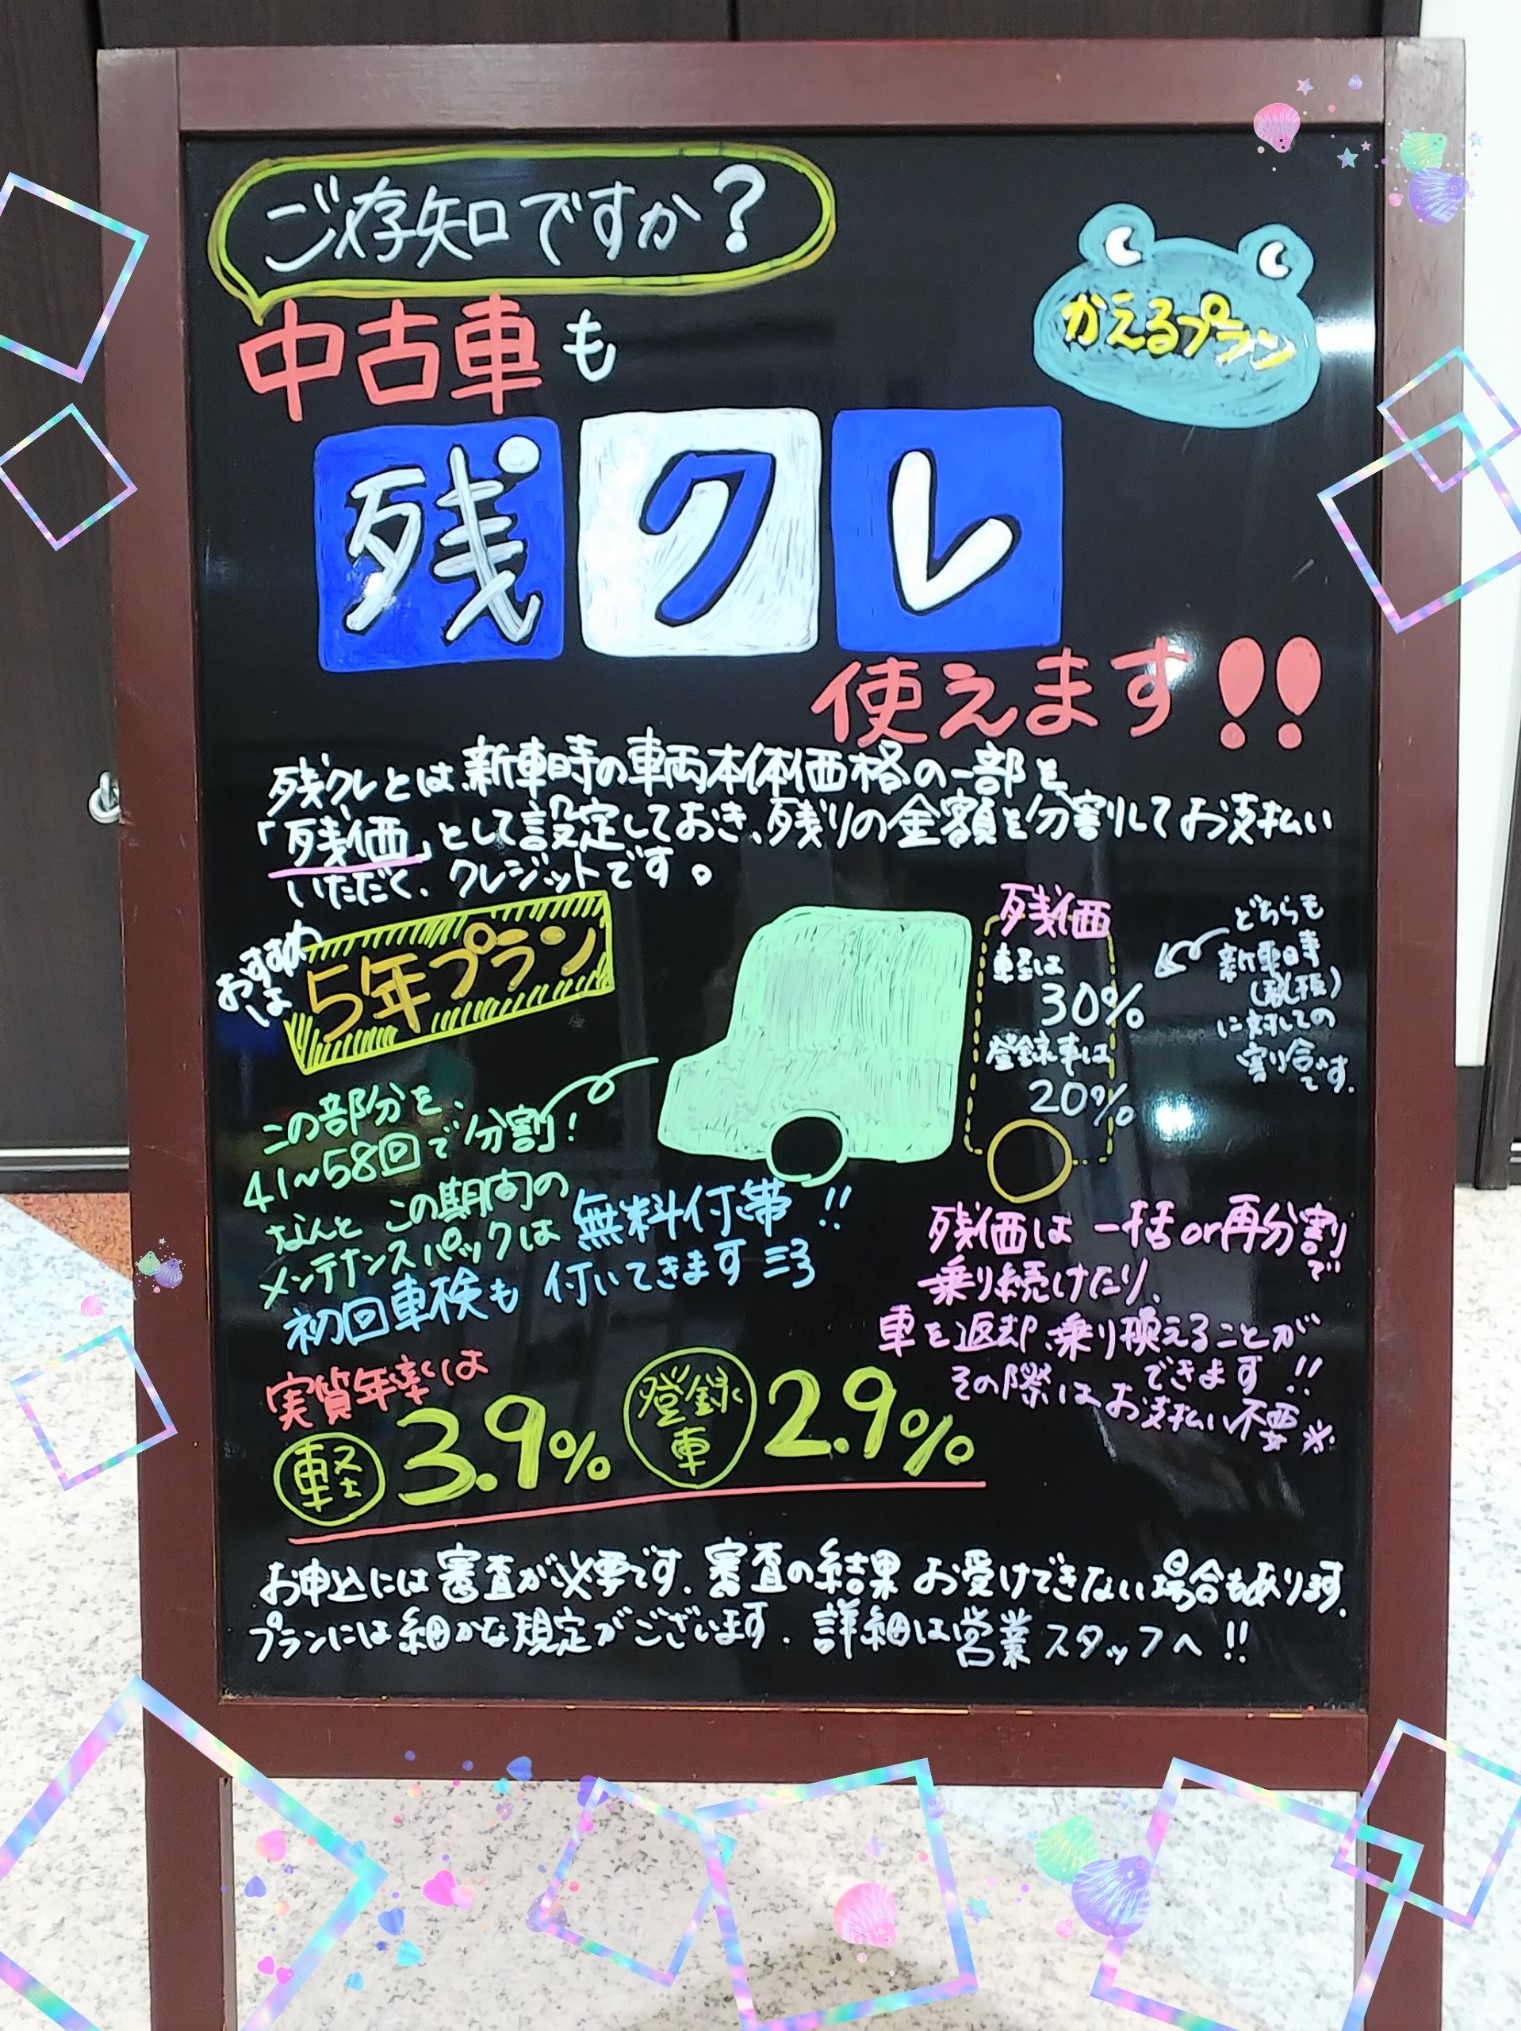 ご存知ですか?
かえるプラン
中古車も
残クレ
使えます!!
残クレとは、新車時の車両本体価格の一部を、
「残価」として設定しておき、残りの金額を分割してお支払い
いただく、クレジットです。
おすすめは
5年プラン
残価
軽は
30%
登録車は
20%
どちらも
新車時
(税抜)
に対しての
割り合い
です。
この部分を、
41~58回で分割!
なんと この期間の
メンテナンスパックは 無料付帯!!
初回車検も 付いてきます
残価は 一括or再分割で
乗り続けたり、
車を返却、乗り換えることが
できます!!
その際はお支払い不要※
実質年率は
軽 3.9% 登録車 2.9%
お申込には審査が必要です。審査の結果 お受けできない場合もあります。
プランには細かな規定がございます。詳細は営業スタッフへ!!